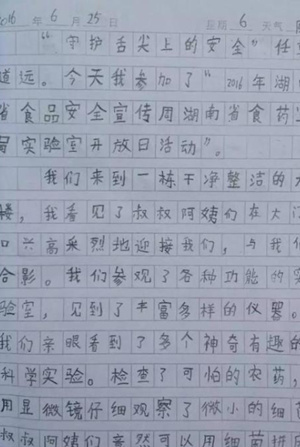 2016年6月25日 星期6 天气
“守护舌尖上的安全”任
道远。今天我参加了“2016年湖
省食品安全宣传周湖南省食药
局实验室开放日活动”。
我们来到一栋干净整洁的大
楼，我看见了叔叔阿姨们在大门
口兴高采烈地迎接我们，与我们
合影。我们参观了各种功能的实
验室，见到了丰富多样的仪器。
我们亲眼看到了多个神奇有趣的
科学实验。检查了可怕的农药，
用显微镜仔细观察了微小的细菌
叔叔阿姨们竟然可以用细菌拼